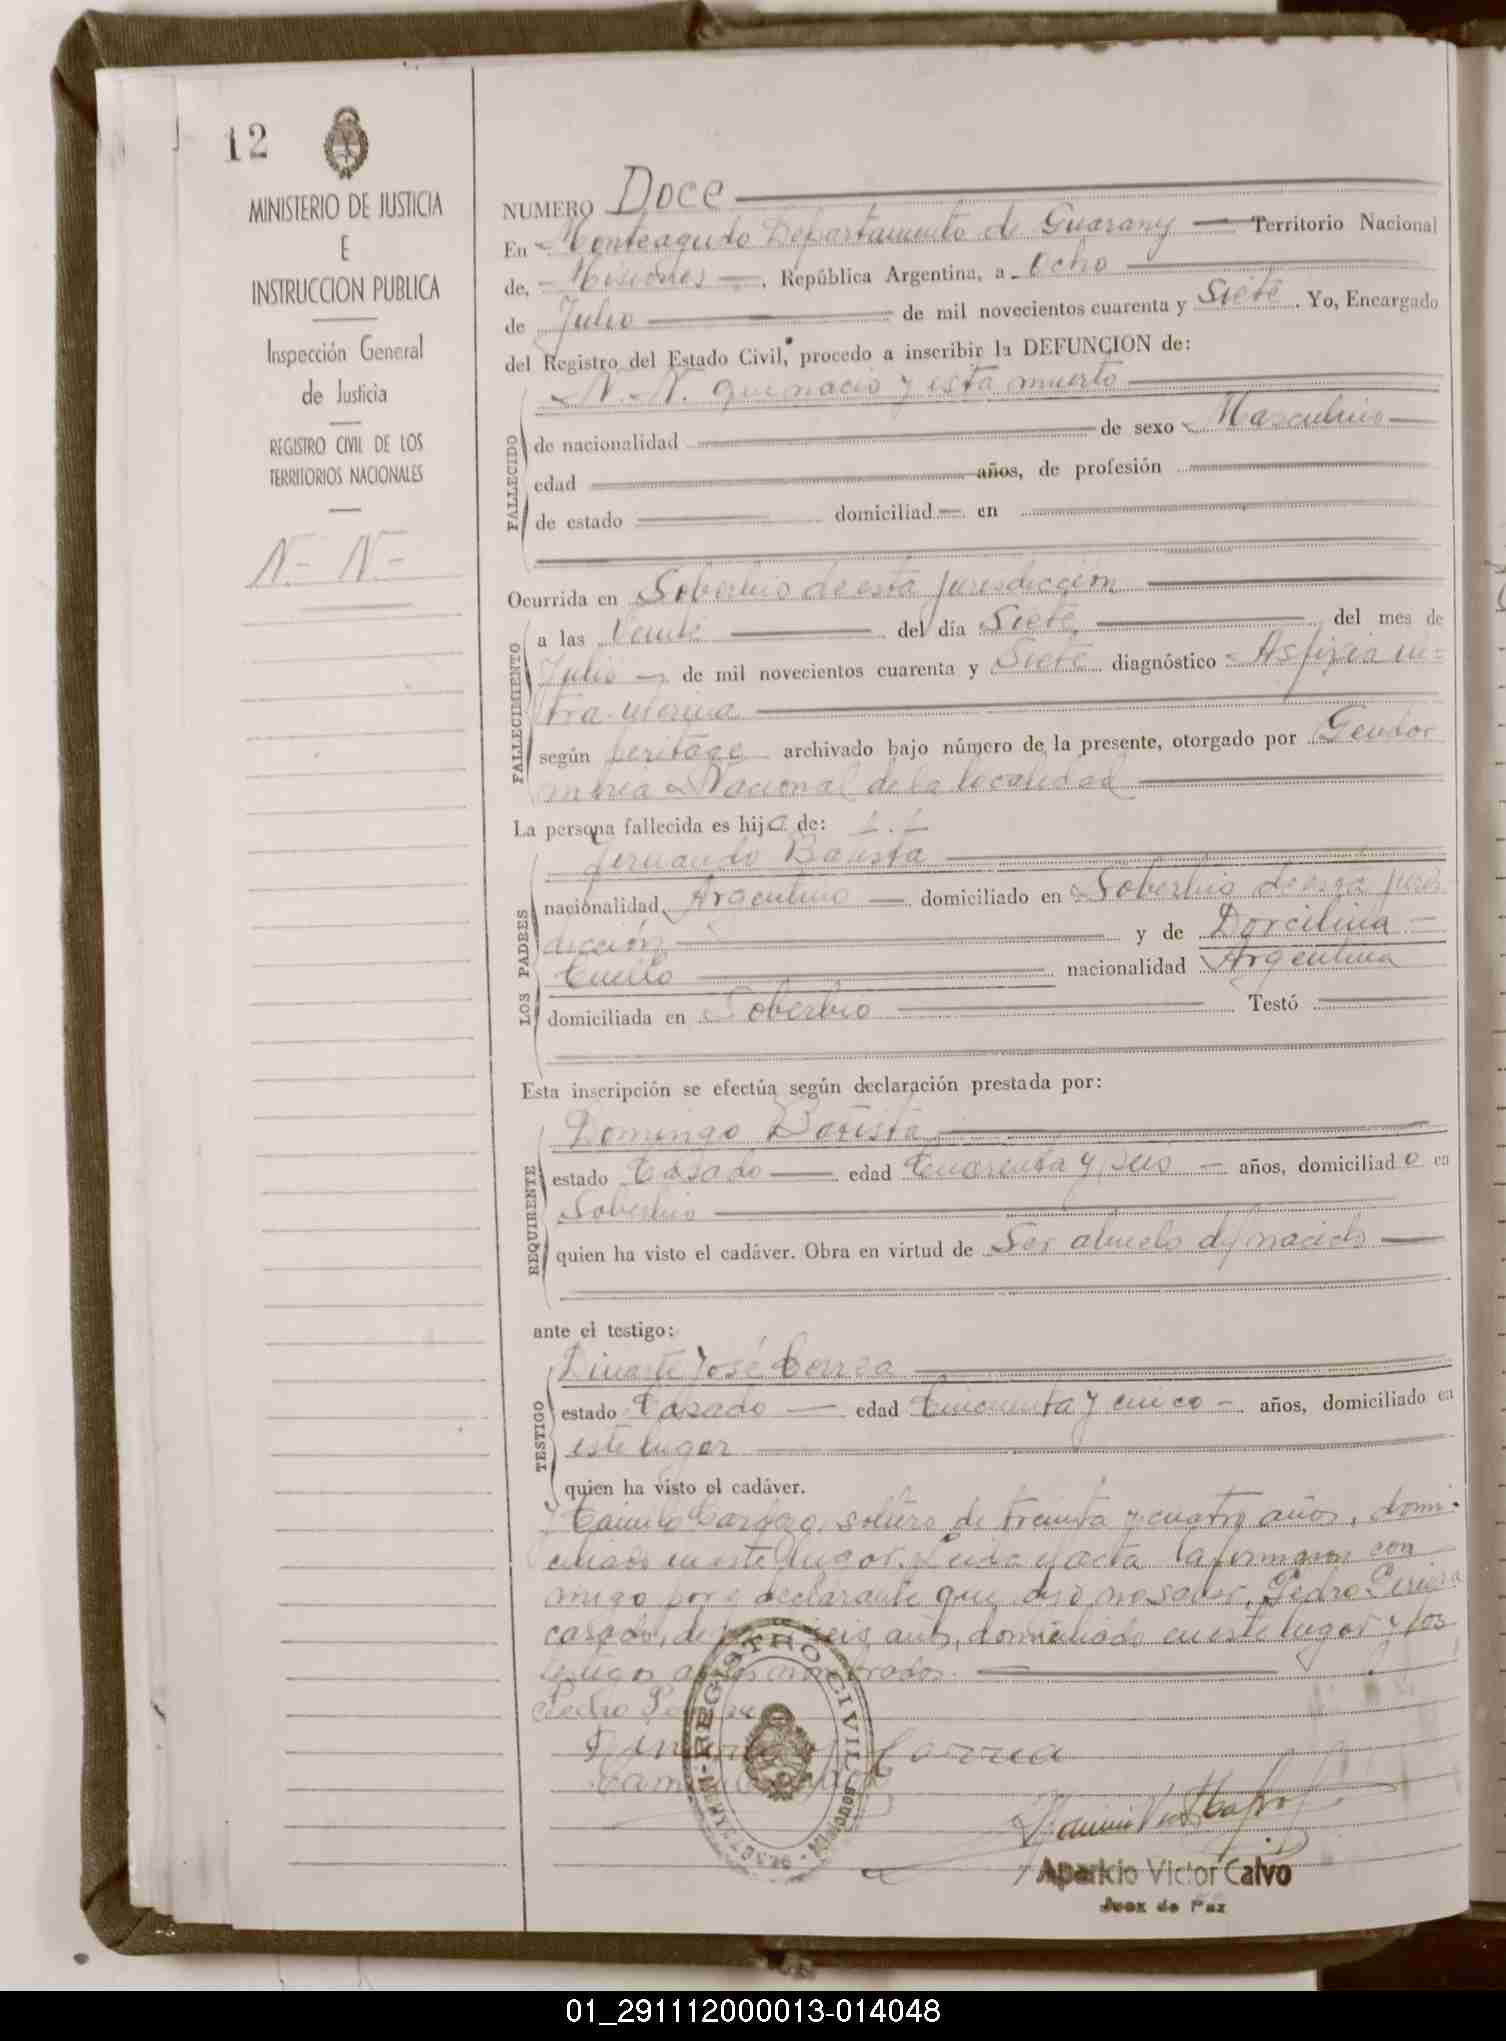 12
MINISTERIO DE JUSTICIA
E
INSTRUCCION PUBLICA
Inspección General
de Justicia
REGISTRO CIVIL DE LOS
TERRITORIOS NACIONALES
N.- N.-
NUMERO Doce
En Monteagudo Departamento de Guarany Territorio Nacional
de, Misiones, República Argentina, a Ocho
de Julio de mil novecientos cuarenta y Siete. Yo, Encargado
del Registro del Estado Civil, procedo a inscribir la DEFUNCION de:
N. N. que nacio y esta muerto
FALLECIDO
de nacionalidad de sexo Masculino
edad años, de profesión
de estado domiciliad en
Ocurrida en Soberbio de esta jurisdiccion
FALLECIMIENTO
a las Veinte del día Siete del mes de
Julio de mil novecientos cuarenta y Siete diagnóstico Asfixia in=
tra uterina
según peritage archivado bajo número de la presente, otorgado por Gendar
meria Nacional de la localidad
La persona fallecida es hijo de:
LOS PADRES
fernando Bausta
nacionalidad Argentino domiciliado en Soberbio de esta juris
dicción y de Dorcilina
Cuello nacionalidad Argentina
domiciliada en Soberbio Testó
Esta inscripción se efectúa según declaración prestada por:
REQUIRENTE
Domingo
estado Casado edad Cuarenta y seis años, domiciliado en
Soberbio
quien ha visto el cadáver. Obra en virtud de Ser abuelo del nacido
ante el testigo:
TESTIGO
José Correa
estado Casado edad Cincuenta y cinco años, domiciliado en
este lugar
quien ha visto el cadáver.
y Camilo soltero de treinta y cuatro años, domi-
ciliado en este lugar. Leida el acta la firmaron con
migo por el declarante que dijo no saber, Pedro
casado, de seis años, domiciliado en este lugar y los
testigos
Pedro
Correa
REGISTRO CIVIL
Aparicio Victor Calvo
Juez de Paz
01_291112000013-014048